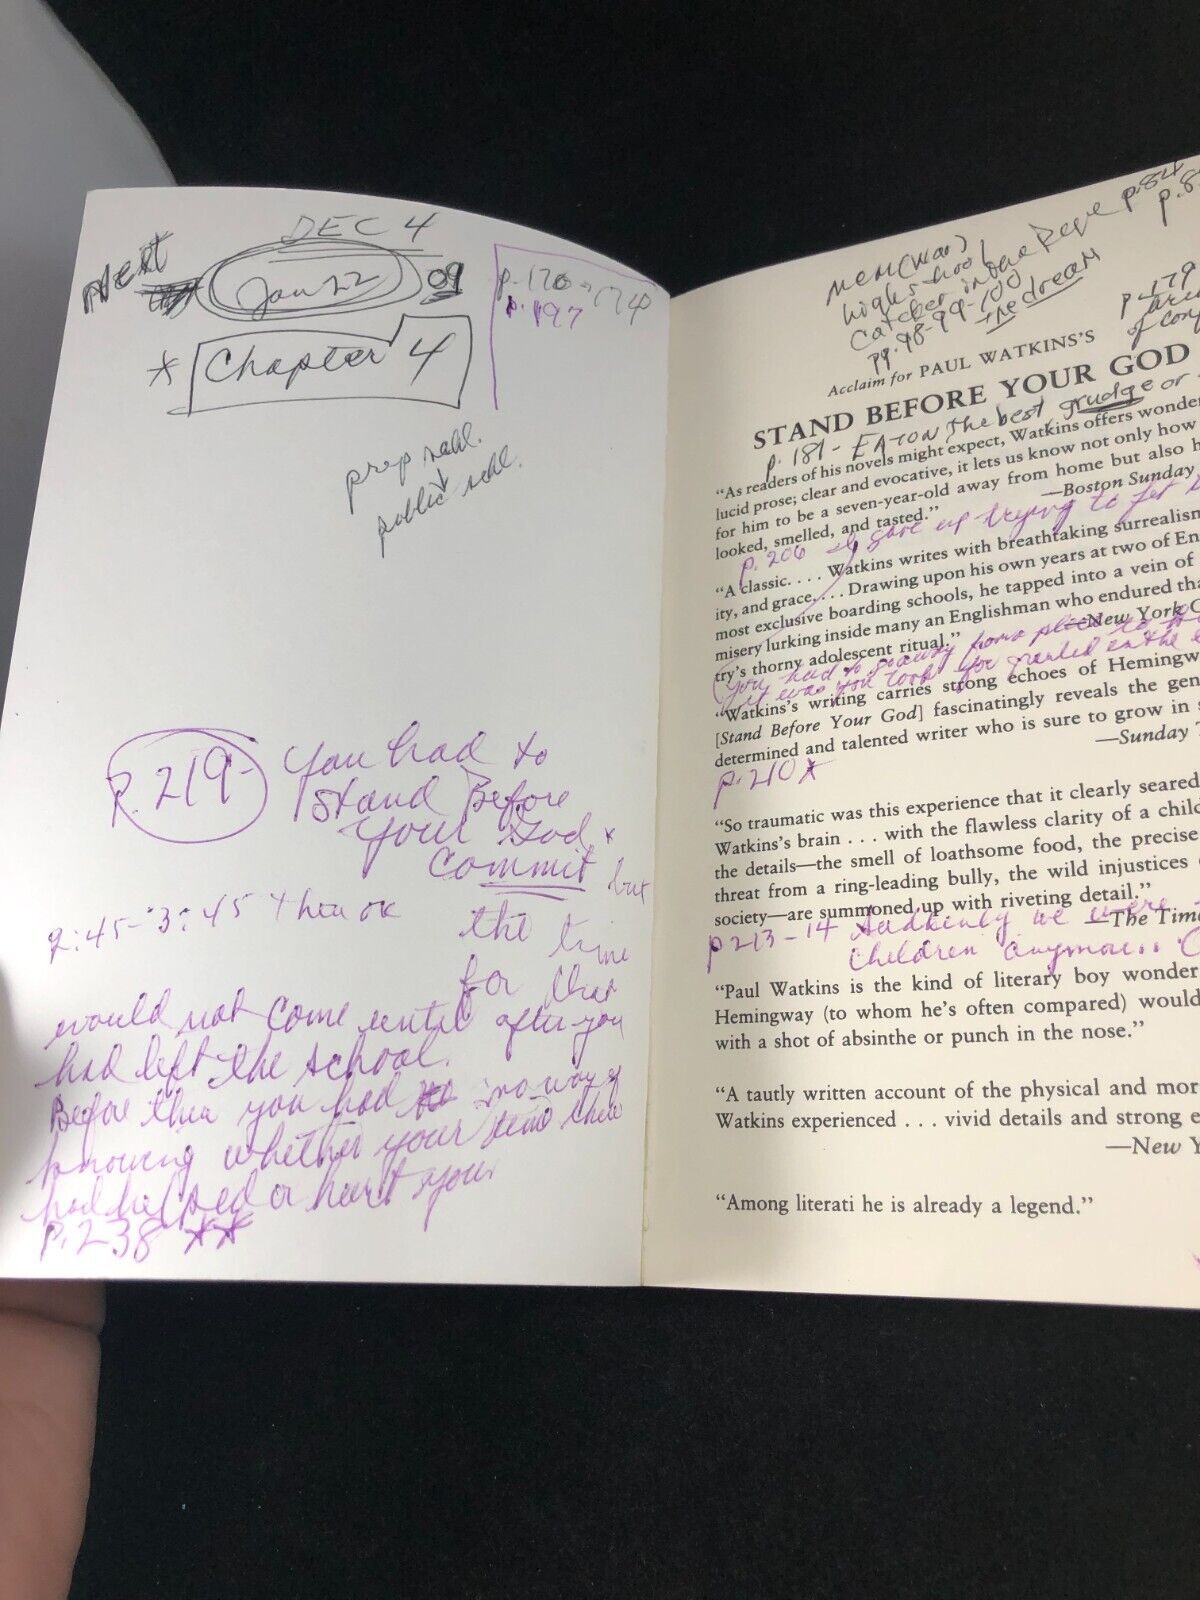 DEC 4
Next
Jan 22 09
* Chapter 4
p. 170-174
p. 197
prep schl.
public schl.
p. 219- You had to
stand Before
your God &
commit but
2:45-3:45 then ok
the time
for that
would not come until after you
had left the school.
Before then you had no way of
knowing whether your time there
had helped or hurt you.
p. 238 **
p. 84
p. 8
high-school
Catcher in the Rye
pp. 98-99-100
the dream
p. 179
of
Acclaim for PAUL WATKINS'S
STAND BEFORE YOUR GOD
p. 181- EATON the best, grudge or
"As readers of his novels might expect, Watkins offers wonder
lucid prose; clear and evocative, it lets us know not only how
for him to be a seven-year-old away from home but also h
looked, smelled, and tasted."
—Boston Sunday
p. 206 I gave up trying to
"A classic. . . . Watkins writes with breathtaking surrealism
ity, and grace. . . . Drawing upon his own years at two of En
most exclusive boarding schools, he tapped into a vein of
misery lurking inside many an Englishman who endured tha
try's thorny adolescent ritual."
—New York
(you had to
you took for granted in the
"Watkins's writing carries strong echoes of Hemingw
[Stand Before Your God] fascinatingly reveals the gen
determined and talented writer who is sure to grow in s
—Sunday T
p. 210*
"So traumatic was this experience that it clearly seared
Watkins's brain . . . with the flawless clarity of a child
the details—the smell of loathsome food, the precise
threat from a ring-leading bully, the wild injustices
society—are summoned up with riveting detail."
—The Time
p 213-14 Suddenly we were
children anymore
"Paul Watkins is the kind of literary boy wonder
Hemingway (to whom he's often compared) would
with a shot of absinthe or punch in the nose."
"A tautly written account of the physical and mor
Watkins experienced . . . vivid details and strong e
—New Y
"Among literati he is already a legend."